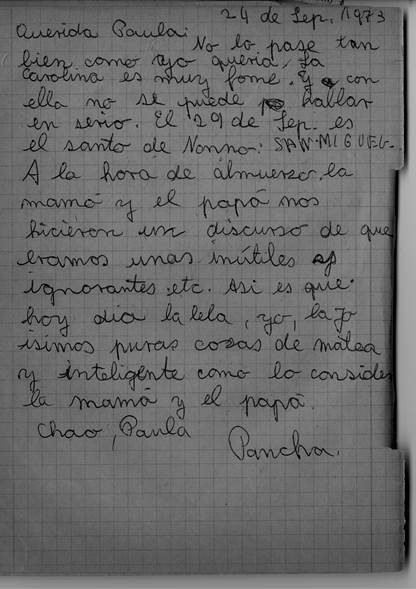 24 de Sep. 1973
Querida Paula:
No lo pase tan
bien como yo quería. La
Carolina es muy fome. Y con
ella no se puede hablar
en serio. El 29 de Sep. es
el santo de Nonno: SAN-MIGUEL.
A la hora de almuerzo, la
mamá y el papá nos
hicieron un discurso de que
eramos unas inútiles
ignorantes, etc. Asi es que
hoy dia la lela, yo, la Jo
isimos puras cosas de matea
y inteligente como lo consider
la mamá y el papá.
Chao, Paula
Pancha.